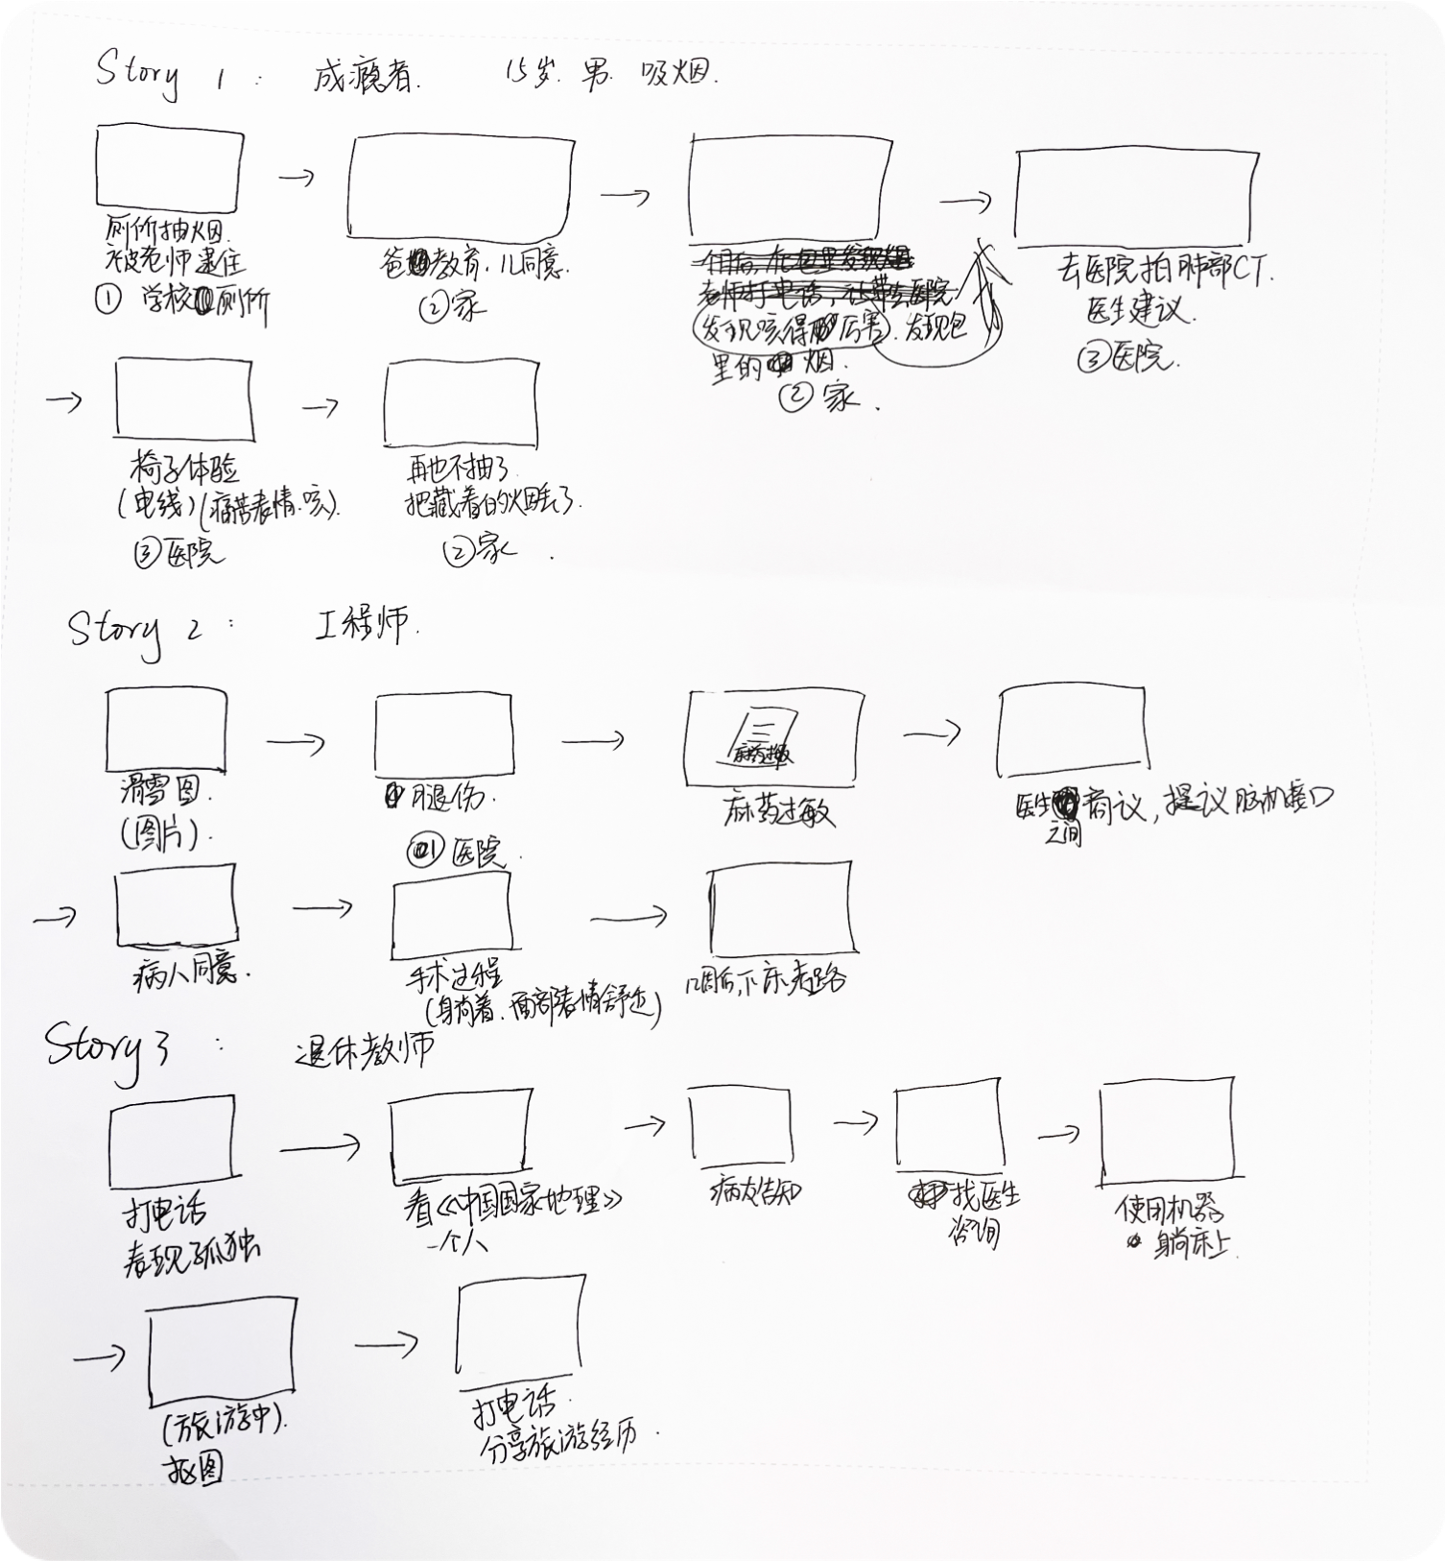 Story 1 : 成瘾者. 15岁. 男. 吸烟.
厕所抽烟.
被老师逮住
① 学校厕所
爸教育. 儿同意.
②家
发现咳得厉害. 发现包
里的烟.
② 家.
去医院拍肺部CT.
医生建议.
③医院.
椅子体验
(电线)(痛苦表情.咳).
③医院
再也不抽了
把藏着的烟丢了.
②家.
Story 2 : 工程师.
滑雪图.
(图片).
腿伤.
医院.
麻药过敏
麻药过敏
医生商议, 提议脑机接口
之间
病人同意.
手术过程
(身躺着. 面部表情舒适)
几周后, 下床走路
Story 3 : 退休教师
打电话
表现孤独
看《中国国家地理》
一个人
病友告知
找医生
咨询
使用机器
躺床上.
(旅游中).
抠图
打电话.
分享旅游经历.